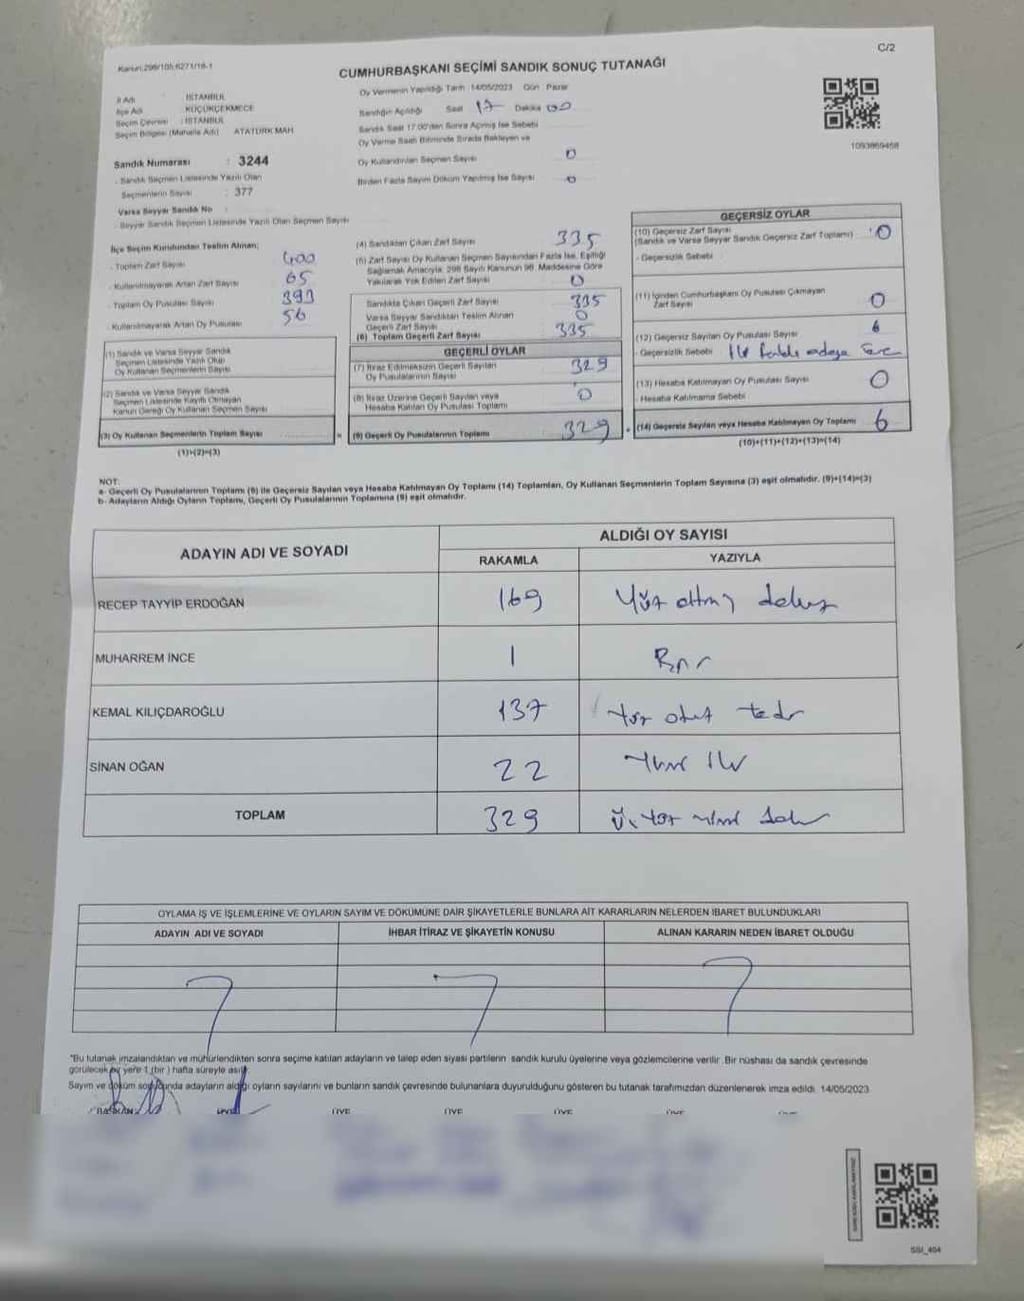 Kanun:298/105,6271/18-1
C/2
CUMHURBAŞKANI SEÇİMİ SANDIK SONUÇ TUTANAĞI
İl Adı : İSTANBUL
İlçe Adı : KÜÇÜKÇEKMECE
Seçim Çevresi : İSTANBUL
Seçim Bölgesi (Mahalle Adı) ATATÜRK MAH
Sandık Numarası : 3244
. Sandık Seçmen Listesinde Yazılı Olan
Seçmenlerin Sayısı : 377
Varsa Seyyar Sandık No :
. Seyyar Sandık Seçmen Listesinde Yazılı Olan Seçmen Sayısı
Oy Vermenin Yapıldığı Tarih 14/05/2023 Gün Pazar
Sandığın Açıldığı Saat 17 Dakika 00
Sandık Saat 17:00'den Sonra Açılmış İse Sebebi
Oy Verme Saati Bitiminde Sırada Bekleyen ve
Oy Kullandırılan Seçmen Sayısı 0
Birden Fazla Sayım Döküm Yapılmış İse Sayısı 0
1093869458
İlçe Seçim Kurulundan Teslim Alınan;
. Toplam Zarf Sayısı 400
. Kullanılmayarak Artan Zarf Sayısı 65
. Toplam Oy Pusulası Sayısı 391
. Kullanılmayarak Artan Oy Pusulası 56
(1) Sandık ve Varsa Seyyar Sandık
Seçmen Listesinde Yazılı Olup
Oy Kullanan Seçmenlerin Sayısı
(2) Sandık ve Varsa Seyyar Sandık
Seçmen Listesinde Kayıtlı Olmayan
Kanun Gereği Oy Kullanan Seçmen Sayısı
(3) Oy Kullanan Seçmenlerin Toplam Sayısı =
(1)+(2)=(3)
(4) Sandıktan Çıkan Zarf Sayısı 335
(5) Zarf Sayısı Oy Kullanan Seçmen Sayısından Fazla İse, Eşitliği
Sağlamak Amacıyla; 298 Sayılı Kanunun 98. Maddesine Göre
Yakılarak Yok Edilen Zarf Sayısı 0
Sandıkta Çıkan Geçerli Zarf Sayısı 335
Varsa Seyyar Sandıktan Teslim Alınan
Geçerli Zarf Sayısı 0
(6) Toplam Geçerli Zarf Sayısı 335
GEÇERLİ OYLAR
(7) İtiraz Edilmeksizin Geçerli Sayılan
Oy Pusulalarının Sayısı 329
(8) İtiraz Üzerine Geçerli Sayılan veya
Hesaba Katılan Oy Pusulası Toplamı 0
(9) Geçerli Oy Pusulalarının Toplamı 329 +
GEÇERSİZ OYLAR
(10) Geçersiz Zarf Sayısı
(Sandık ve Varsa Seyyar Sandık Geçersiz Zarf Toplamı) 0
. Geçersizlik Sebebi
(11) İçinden Cumhurbaşkanı Oy Pusulası Çıkmayan
Zarf Sayısı 0
(12) Geçersiz Sayılan Oy Pusulası Sayısı 6
. Geçersizlik Sebebi
(13) Hesaba Katılmayan Oy Pusulası Sayısı 0
. Hesaba Katılmama Sebebi
(14) Geçersiz Sayılan veya Hesaba Katılmayan Oy Toplamı 6
(10)+(11)+(12)+(13)=(14)
NOT:
a- Geçerli Oy Pusulalarının Toplamı (9) ile Geçersiz Sayılan veya Hesaba Katılmayan Oy Toplamı (14) Toplamları, Oy Kullanan Seçmenlerin Toplam Sayısına (3) eşit olmalıdır. (9)+(14)=(3)
b- Adayların Aldığı Oyların Toplamı, Geçerli Oy Pusulalarının Toplamına (9) eşit olmalıdır.
ADAYIN ADI VE SOYADI
ALDIĞI OY SAYISI
RAKAMLA YAZIYLA
RECEP TAYYİP ERDOĞAN 169 Yüz altmış dokuz
MUHARREM İNCE 1 Bir
KEMAL KILIÇDAROĞLU 137 Yüz otuz yedi
SİNAN OĞAN 22 Yirmi iki
TOPLAM 329 Üç yüz yirmi dokuz
OYLAMA İŞ VE İŞLEMLERİNE VE OYLARIN SAYIM VE DÖKÜMÜNE DAİR ŞİKAYETLERLE BUNLARA AİT KARARLARIN NELERDEN İBARET BULUNDUKLARI
ADAYIN ADI VE SOYADI İHBAR İTİRAZ VE ŞİKAYETİN KONUSU ALINAN KARARIN NEDEN İBARET OLDUĞU
*Bu tutanak imzalandıktan ve mühürlendikten sonra seçime katılan adayların ve talep eden siyasi partilerin sandık kurulu üyelerine veya gözlemcilerine verilir. Bir nüshası da sandık çevresinde
görülecek bir yere 1 (bir) hafta süreyle asılır.
Sayım ve döküm sonucunda adayların aldığı oyların sayılarını ve bunların sandık çevresinde bulunanlara duyurulduğunu gösteren bu tutanak tarafımızdan düzenlenerek imza edildi. 14/05/2023
BAŞKAN ÜYE ÜYE ÜYE ÜYE
SSI_404